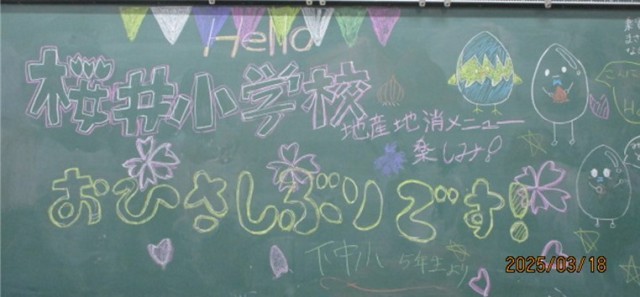 Hello
桜井小学校
地産地消メニュー
楽しみ!
おひさしぶりです!
下中小 5年生より
2025/03/18